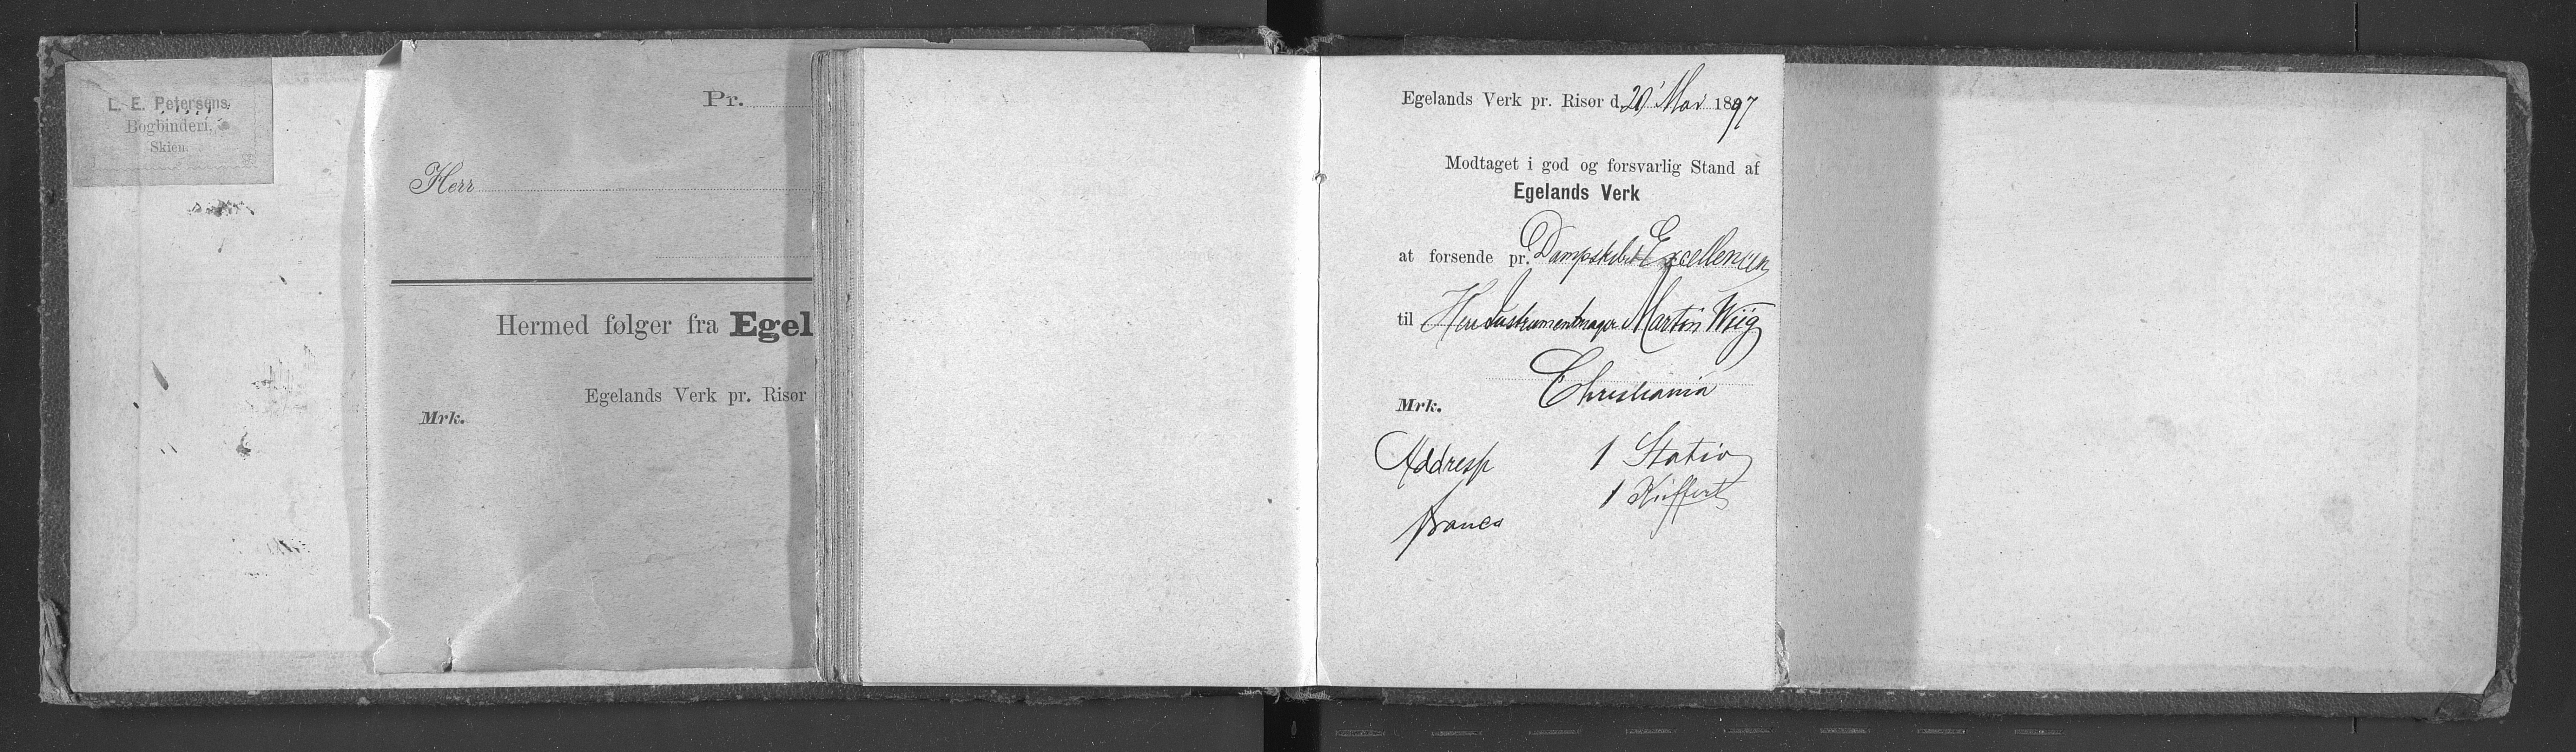 L. E. Petersens
Bogbinderi,
Skien.
Pr.
Herr
Hermed følger fra Egel
Egelands Verk pr. Risør
Mrk.
Egelands Verk pr. Risør d. 20' Mai 1897
Modtaget i god og forsvarlig Stand af
Egelands Verk
at forsende pr. Dampskibet Excellencen
til Herr Instrumentmager Martin Wiig
Christiania
Mrk.
Address 1 Stativ
1 Kuffert
franco